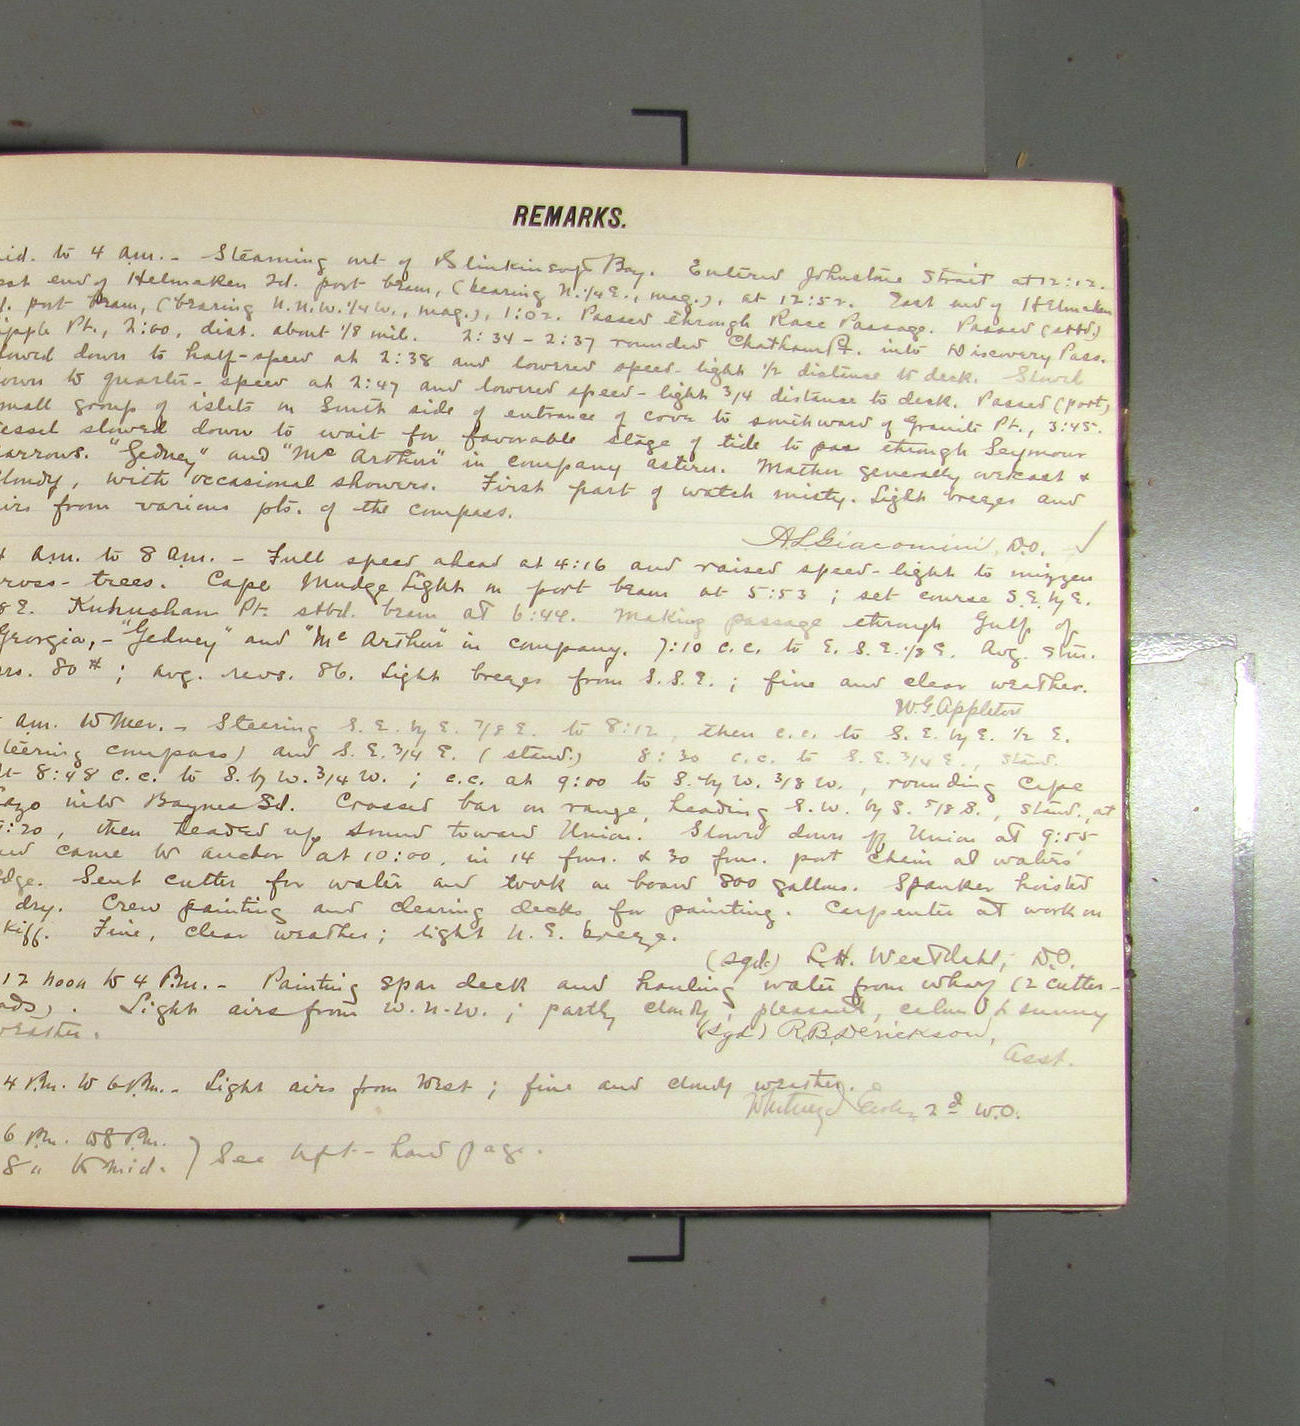 REMARKS.
id. to 4 am. - Steaming out of Blinkinsop Bay. Entered Johnstone Strait at 12:12.
st end of Helmaken Id. port beam, (bearing N. 1/4 E., mag.), at 12:52. East end of Helmaken
d. port beam, (bearing N.N.W. 1/4 W., mag.), 1:02. Passed through Race Passage. Passed (stbd)
ipple Pt., 2:00, dist. about 1/8 mile. 2:34 - 2:37 rounded Chatham Pt. into Discovery Pass.
lowed down to half-speed at 2:38 and lowered speed-light 1/2 distance to deck. Slowed
own to quarter-speed at 2:47 and lowered speed-light 3/4 distance to deck. Passed (port)
mall group of islets on South side of entrance of cove to southward of Granite Pt., 3:45.
essel slowed down to wait for favorable stage of tide to pass through Seymour
arrows. "Gedney" and "Mc Arthur" in company astern. Weather generally overcast &
loudy, with occasional showers. First part of watch misty. Light breezes and
irs from various pts. of the compass.
A L Giacomini, D.O. ✓
4 am. to 8 am. - Full speed ahead at 4:16 and raised speed-light to mizzen
ross-trees. Cape Mudge Light on port beam at 5:53; set course S.E. by E.
8 E. Kuhushan Pt. stbd. beam at 6:44. Making passage through Gulf of
Georgia, - "Gedney" and "Mc Arthur" in company. 7:10 c.c. to E. S. E. 1/8 E. Avg. stm.
rs. 80 #; avg. revs. 86. Light breezes from S.S.E.; fine and clear weather.
W.G. Appleton
am. to Mer. - Steering S. E. by E. 7/8 E. to 8:12, then c.c. to S. E. by E. 1/2 E.
teering compass) and S. E. 3/4 E. (stand.) 8:30 c.c. to S. E. 3/4 E., stand.
At 8:48 c.c. to S. by W. 3/4 W.; c.c. at 9:00 to S. by W. 3/8 W., rounding Cape
Lazo into Baynes Sd. Crossed bar on range, heading S.W. by S. 5/8 S., stand., at
9:20, then headed up sound toward Union. Slowed down off Union at 9:55
and came to anchor at 10:00, in 14 fms. & 30 fms. port chain at water's
edge. Sent cutter for water and took on board 800 gallons. Spanker hoisted
dry. Crew painting and clearing decks for painting. Carpenter at work on
kiff. Fine, clear weather; light N. E. breeze.
(sgd.) L.H. Westdahl, D.O.
12 noon to 4 P.m. - Painting spar deck and hauling water from wharf (2 cutter-
ads). Light airs from W.N.W.; partly cloudy, pleasant, calm & sunny
weather.
(sgd) R.B. Derickson,
Asst.
4 P.m. to 6 P.m. - Light airs from West; fine and cloudy weather.
2d W.O.
6 P.m. to 8 P.m.
8 " to mid. } See left-hand page.